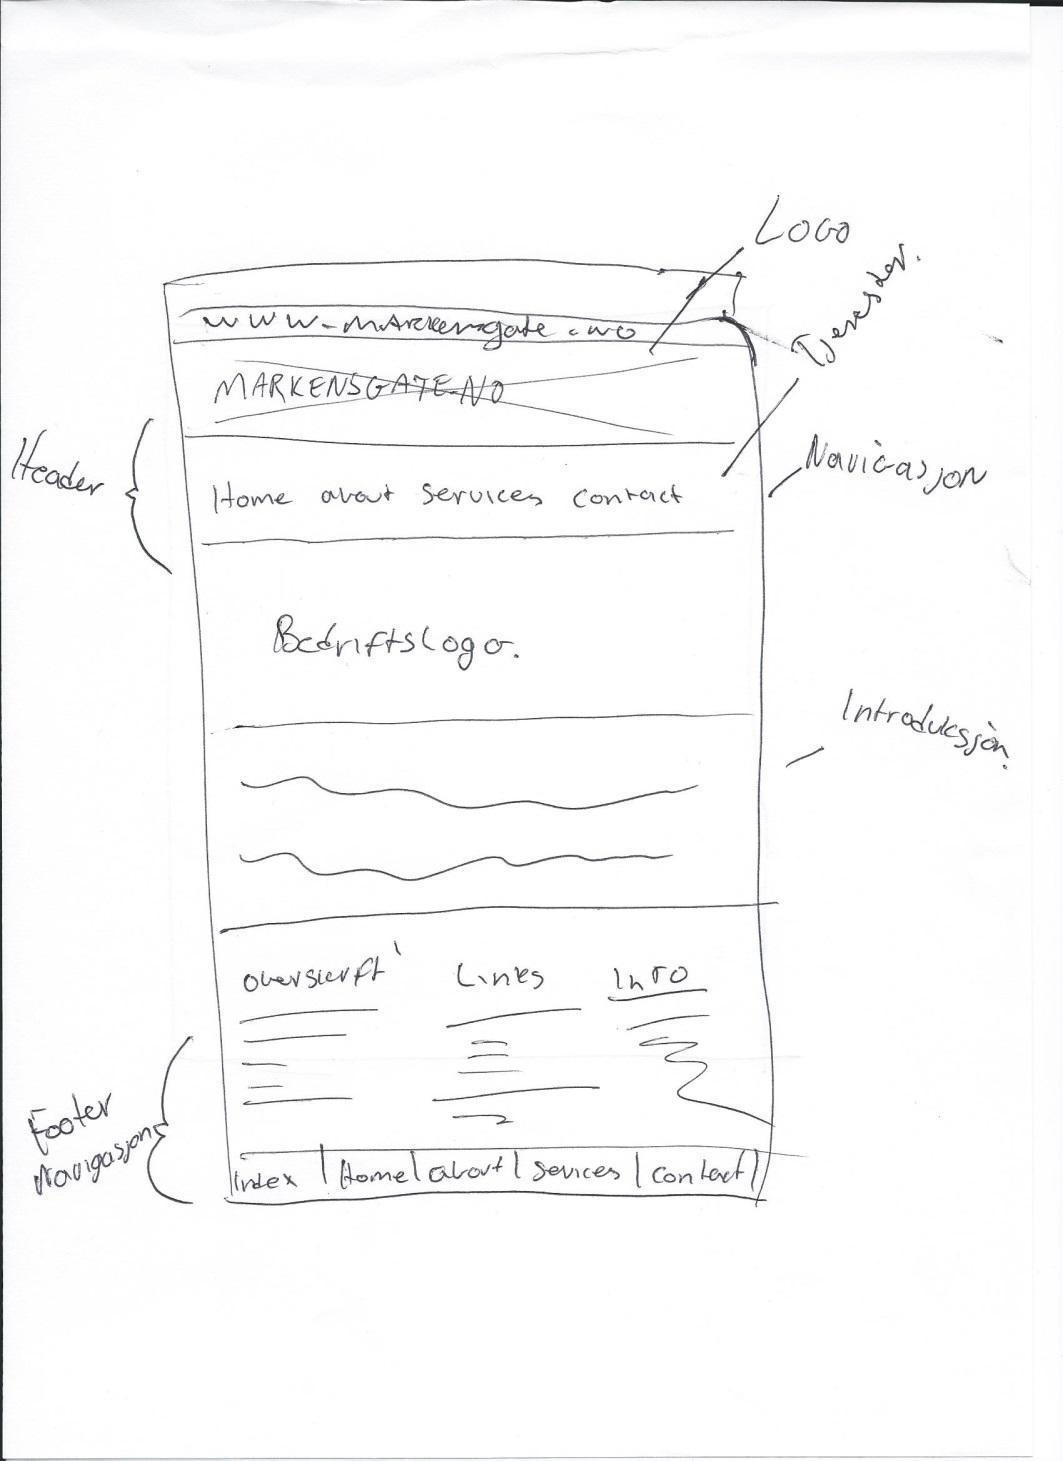 Logo
Tjenester.
www.markensgate.no
MARKENSGATE.NO
Header
Navigasjon
Home about services contact
Bedriftslogo.
Introduksjon.
overskrft
Links
Info
Footer
Navigasjon
Index | Home | about | Sevices | contact |